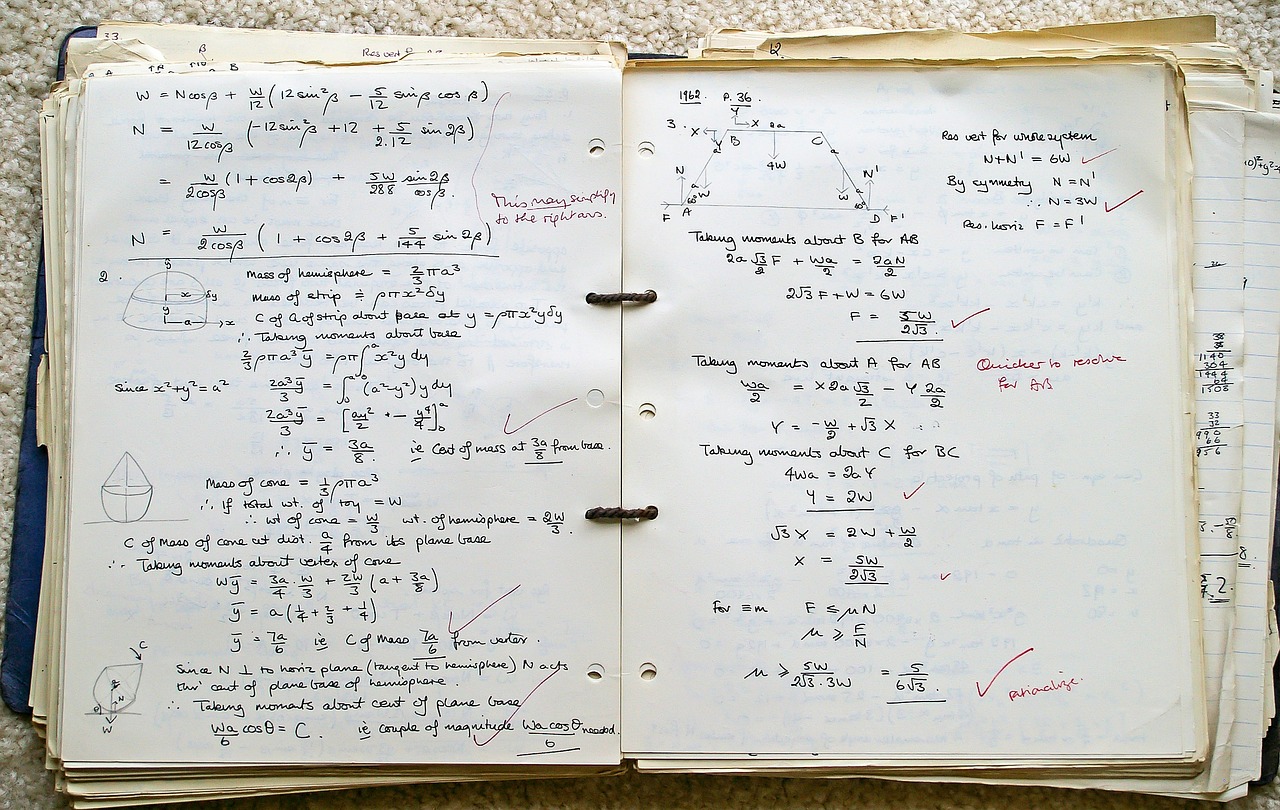 33.
β
Res vert
B
W = Ncosβ + W/12 (12sin²β − 5/12 sinβ cosβ)
N = W/12cosβ (−12sin²β + 12 + 5/2.12 sin2β)
= W/2cosβ (1 + cos2β) + 5W/288 sin2β/cosβ.
This may simplify
to the right ans.
N = W/2cosβ (1 + cos2β + 5/144 sin2β)
2.
y
x δy
y
a x
Mass of hemisphere = 2/3 πa³
Mass of strip ≑ ρπx²δy
C of G of strip about base at y = ρπx²yδy
∴ Taking moments about base
2/3 ρπa³ȳ = ρπ∫₀ᵃ x²y dy
Since x²+y²=a² 2a³ȳ/3 = ∫₀ᵃ (a²−y²)y dy
2a³ȳ/3 = [ay²/2 − y⁴/4]₀ᵃ
∴ ȳ = 3a/8 ie Cent of mass at 3a/8 from base.
Mass of cone = 1/3 ρπa³
∴ If total wt. of toy = W
∴ wt of cone = W/3 wt. of hemisphere = 2W/3.
C of Mass of cone at dist. a/4 from its plane base
∴ Taking moments about vertex of cone
Wȳ = 3a/4 . W/3 + 2W/3 (a + 3a/8)
ȳ = a(1/4 + 2/3 + 1/4)
ȳ = 7a/6 ie C of Mass 7a/6 from vertex.
C
N
θ
W
Since N ⊥ to horiz plane (tangent to hemisphere) N acts
thro' cent of plane base of hemisphere.
∴ Taking moments about cent of plane base
Wa/6 cosθ = C. ie couple of magnitude Wa cosθ/6 needed.
1962. P. 36.
Y
3. X X 2a
B C
Y a a
4W
N N'
a W W a
60° 60°
F A D F'
Res vert for whole system
N+N' = 6W
By symmetry N = N'
∴ N = 3W
Res. horiz F = F'
Taking moments about B for AB
2a√3/2 F + Wa/2 = 2aN/2
2√3 F + W = 6W
F = 5W/2√3.
Taking moments about A for AB
Quicker to resolve
for AB
Wa/2 = X 2a√3/2 − Y 2a/2
Y = −W/2 + √3 X
Taking moments about C for BC
4Wa = 2aY
Y = 2W
√3 X = 2W + W/2
X = 5W/2√3
For ≡m F ≤ μN
μ ≥ F/N
μ ≥ 5W/2√3.3W = 5/6√3.
rationalize.
38
38
1140
304
1444
64
1508
33
32
990
66
956